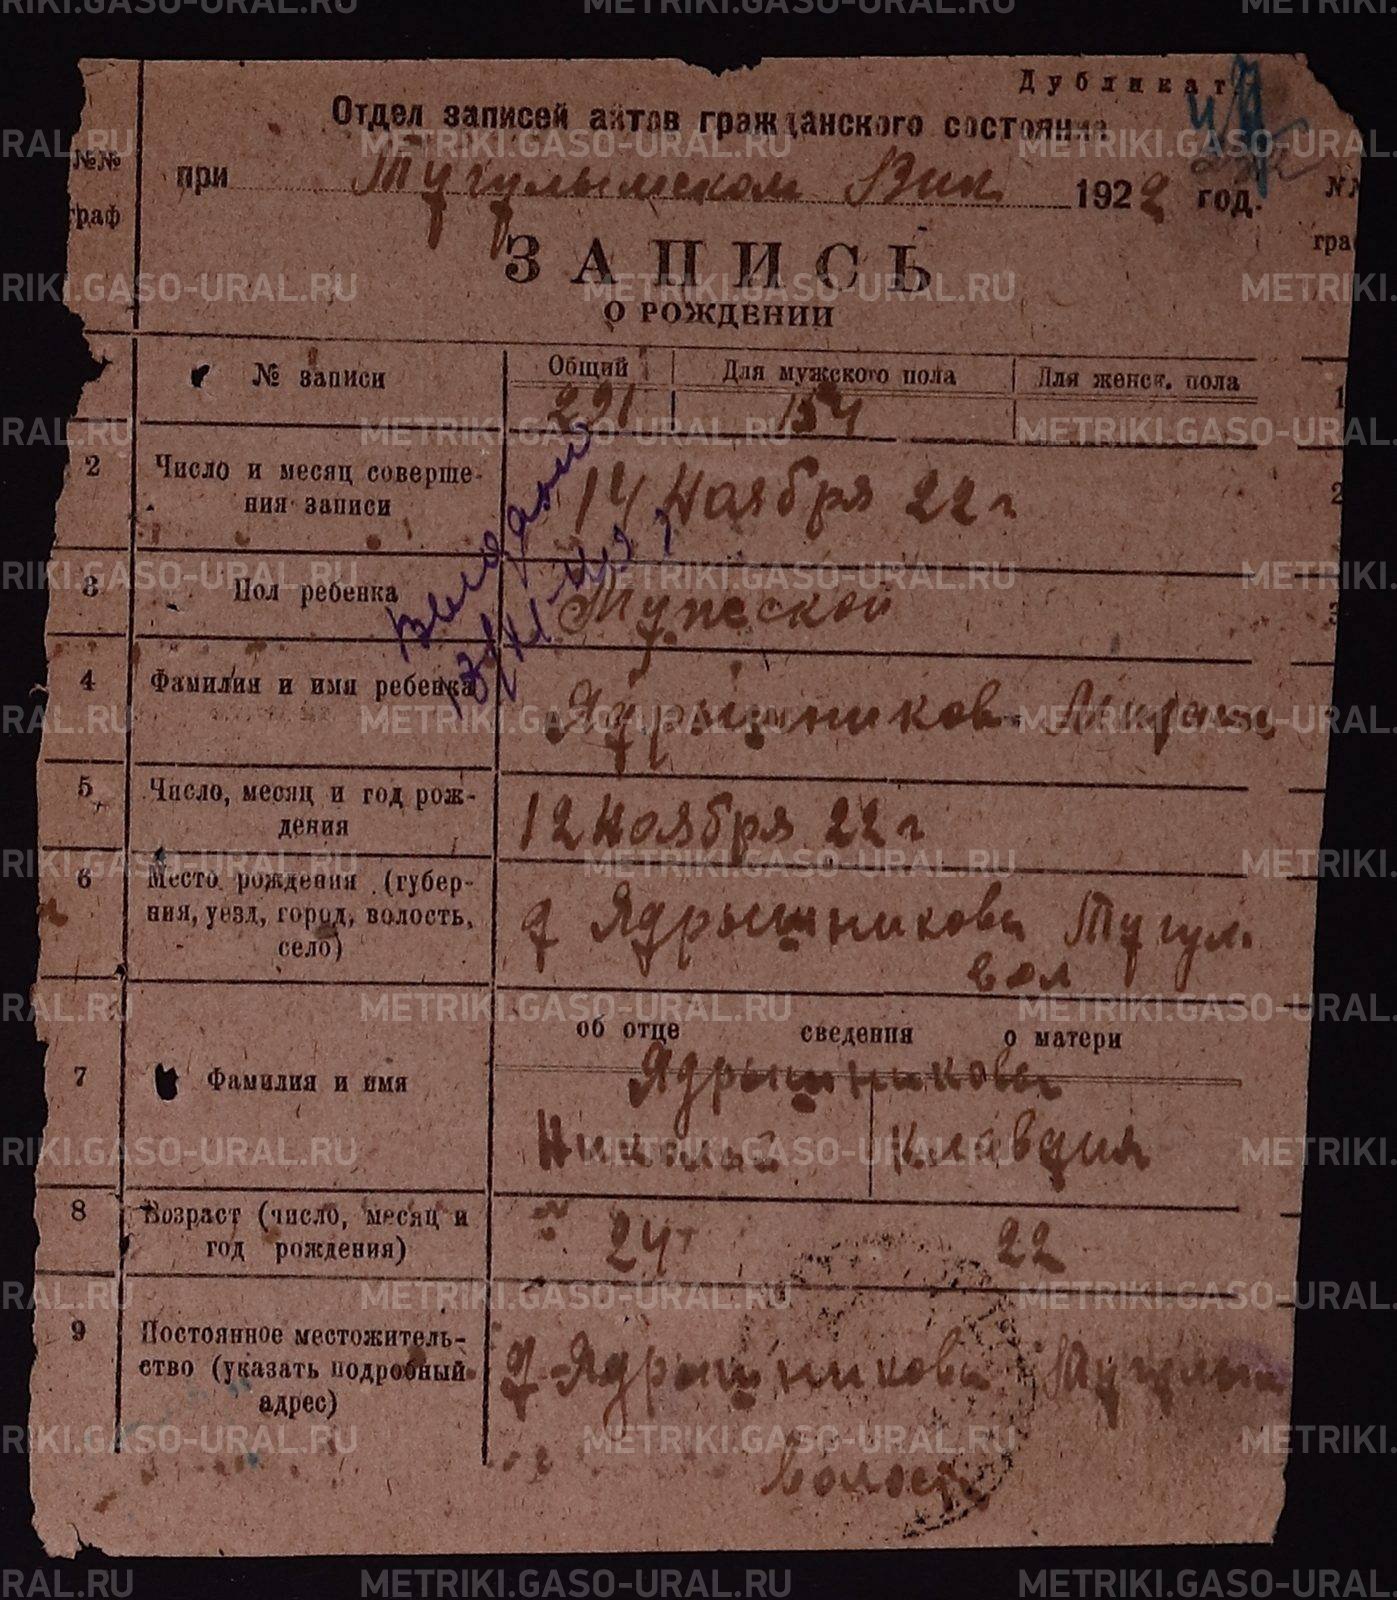 Дубликат
Отдел записей актов гражданского состояние
№№ граф
при Тугулымском Вик 1922 год.
ЗАПИСЬ
О РОЖДЕНИИ
№ записи
Общий
Для мужского пола
Для женск. пола
291
154
2
Число и месяц соверше-
ния записи
14 Ноября 22 г
3
Пол ребенка
Мужской
4
Фамилия и имя ребенка
Ядрышников
5
Число, месяц и год рож-
дения
12 Ноября 22 г
6
Место рождения (губер-
ния, уезд, город, волость,
село)
д Ядрышникова Тугул.
вол
об отце сведения о матери
7
Фамилия и имя
Ядрышниковы
Николай
Клавдия
8
Возраст (число, месяц и
год рождения)
24
22
9
Постоянное местожитель-
ство (указать подробный
адрес)
д Ядрышникова
METRIKI.GASO-URAL.RU